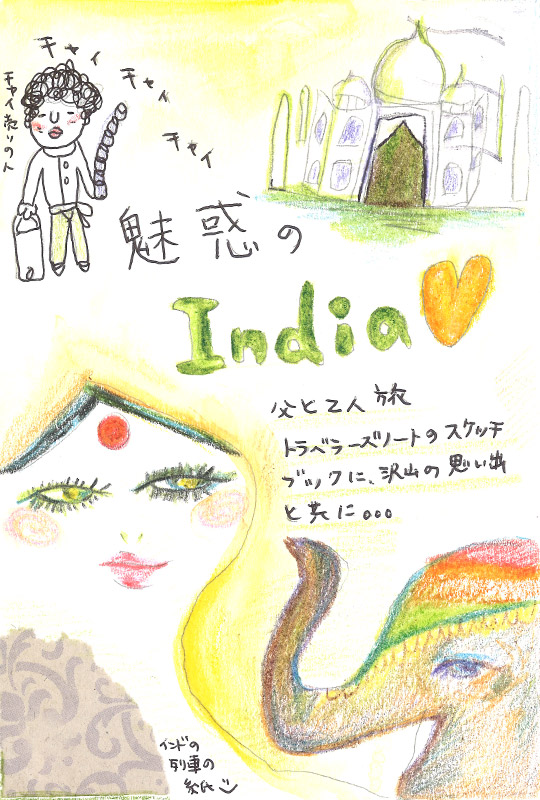 チャイ
チャイ
チャイ
チャイ売りの人
魅惑の
India
父と2人旅
トラベラーズノートのスケッチ
ブックに、沢山の思い出
と共に。。。
インドの
列車の
紙